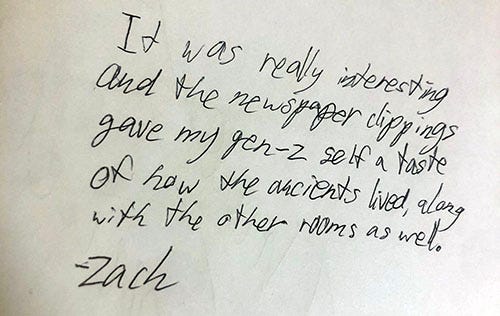 It was really interesting
and the newspaper clippings
gave my gen-z self a taste
of how the ancients lived, along
with the other rooms as well.
-Zach